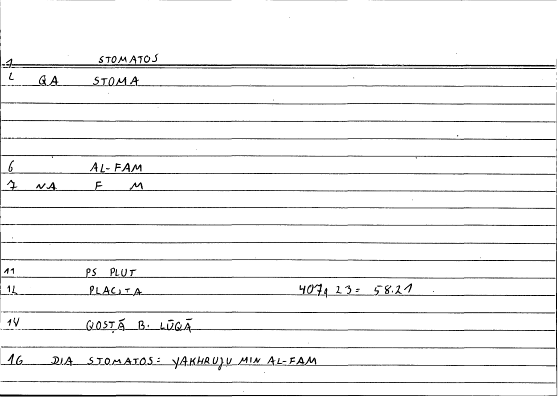 1 STOMATOS
2 QA STOMA
6 AL-FAM
7 NA F M
11 PS PLUT
12 PLACITA 407,23 = 58.21
14 QOSṬĀ B. LŪQĀ
16 DIA STOMATOS = YAKHRUJU MIN AL-FAM